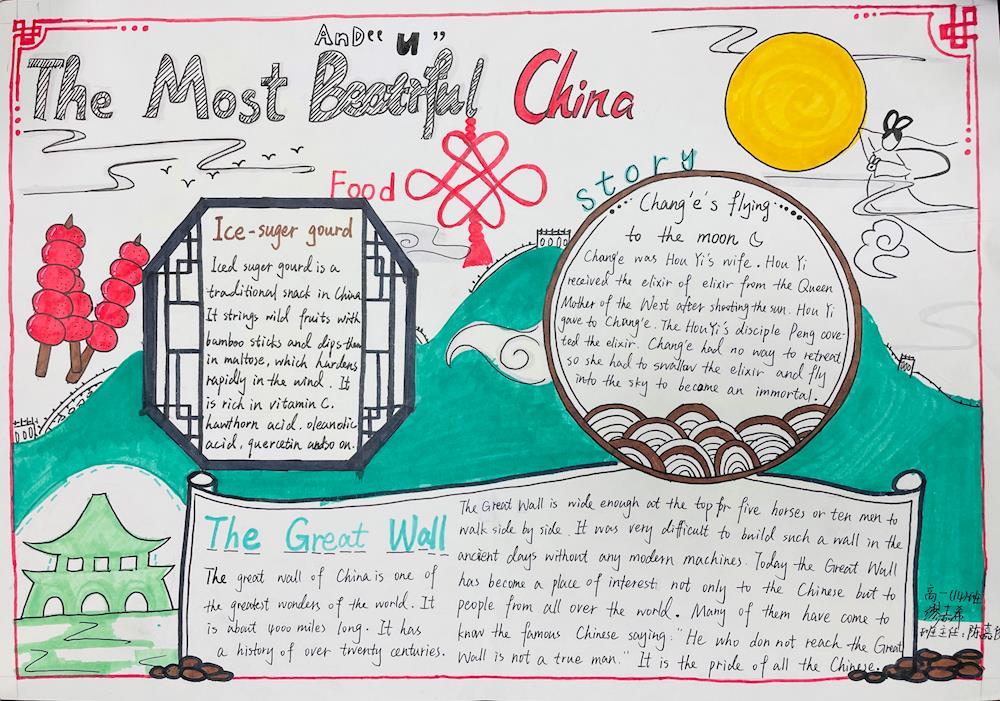 AnD “u”
The Most Beautiful China
Food
Ice-suger gourd
Iced suger gourd is a
traditional snack in China
It strings wild fruits with
bamboo sticks and dips them
in maltose, which hardens
rapidly in the wind. It
is rich in vitamin C.
hawthorn acid, oleanolic
acid, quercetin and so on.
story
Chang'e's flying
to the moon
Chang'e was Hou Yi's wife. Hou Yi
received the elixir of elixir from the Queen
Mother of the West after shooting the sun. Hou Yi
gave to Chang'e. The Hou Yi's disciple Peng cove-
ted the elixir. Chang'e had no way to retreat,
so she had to swallow the elixir and fly
into the sky to become an immortal.
The Great Wall
The great wall of China is one of
the greatest wonders of the world. It
is about 4000 miles long. It has
a history of over twenty centuries.
The Great Wall is wide enough at the top for five horses or ten men to
walk side by side. It was very difficult to build such a wall in the
ancient days without any modern machines. Today the Great Wall
has become a place of interest not only to the Chinese but to
people from all over the world. Many of them have come to
know the famous Chinese saying: "He who don not reach the Great
Wall is not a true man." It is the pride of all the Chinese.
高一(14)班
班主任:陈